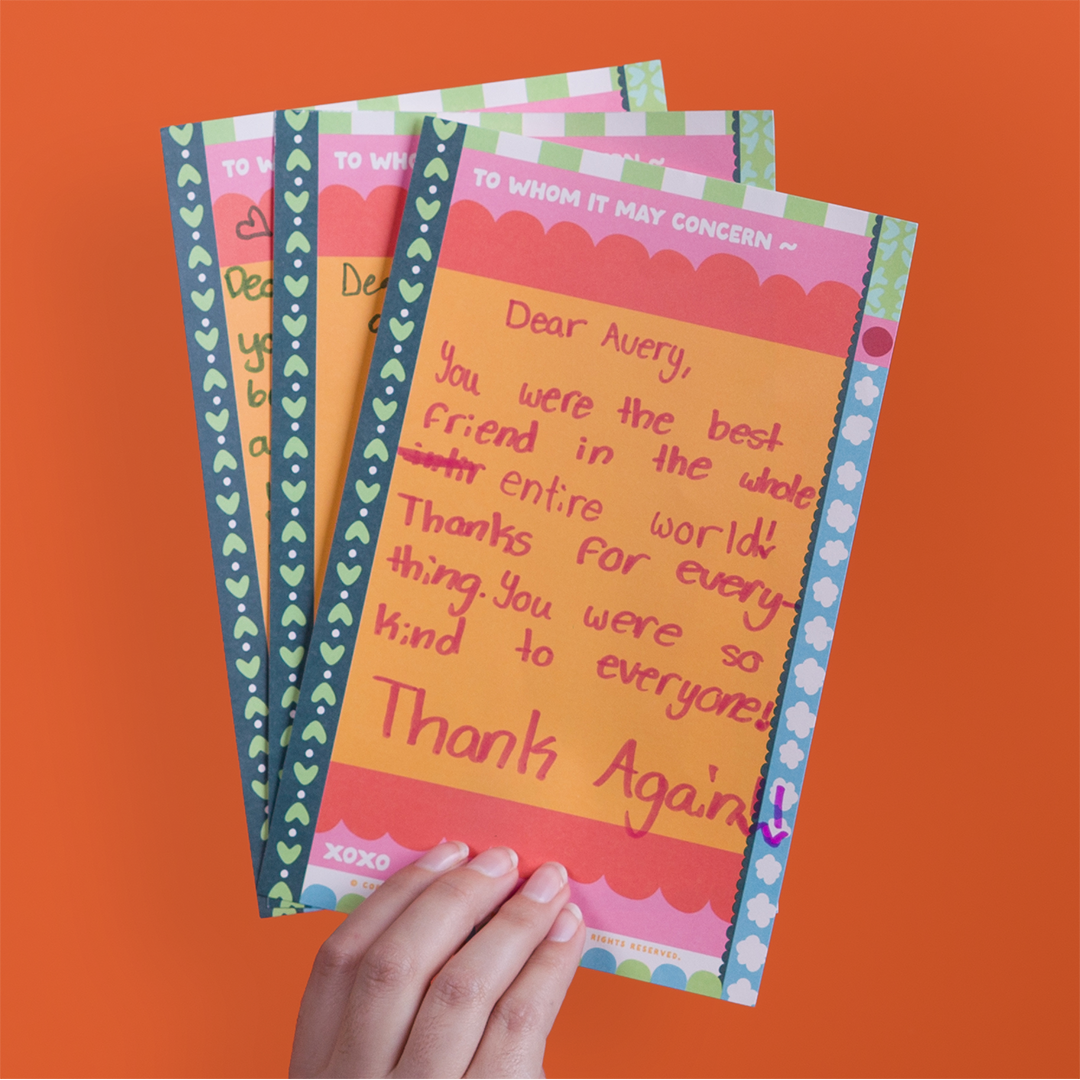 TO W
TO WHO
TO WHOM IT MAY CONCERN ~
Dear Avery,
You were the best
friend in the whole
entire world!
Thanks for every-
thing. You were so
kind to everyone!
Thank Again!
XOXO
RIGHTS RESERVED.